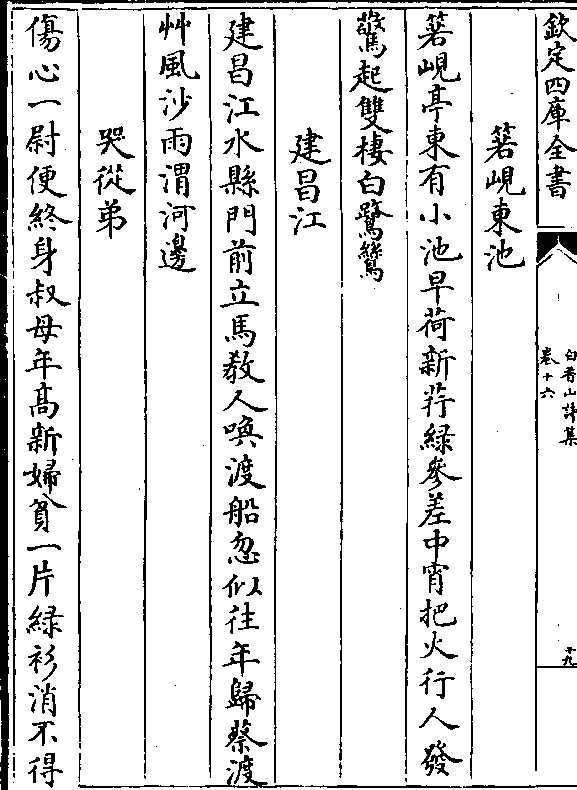 欽定四庫全書
白香山詩集
卷十六
十九
箬峴東池
箬峴亭東有小池早荷新荇緑參差中宵把火行人發
驚起雙棲白鷺鷥
建昌江
建昌江水縣門前立馬教人喚渡船忽似往年歸蔡渡
艸風沙雨渭河邊
哭從弟
傷心一尉便終身叔母年髙新婦貧一片緑衫消不得